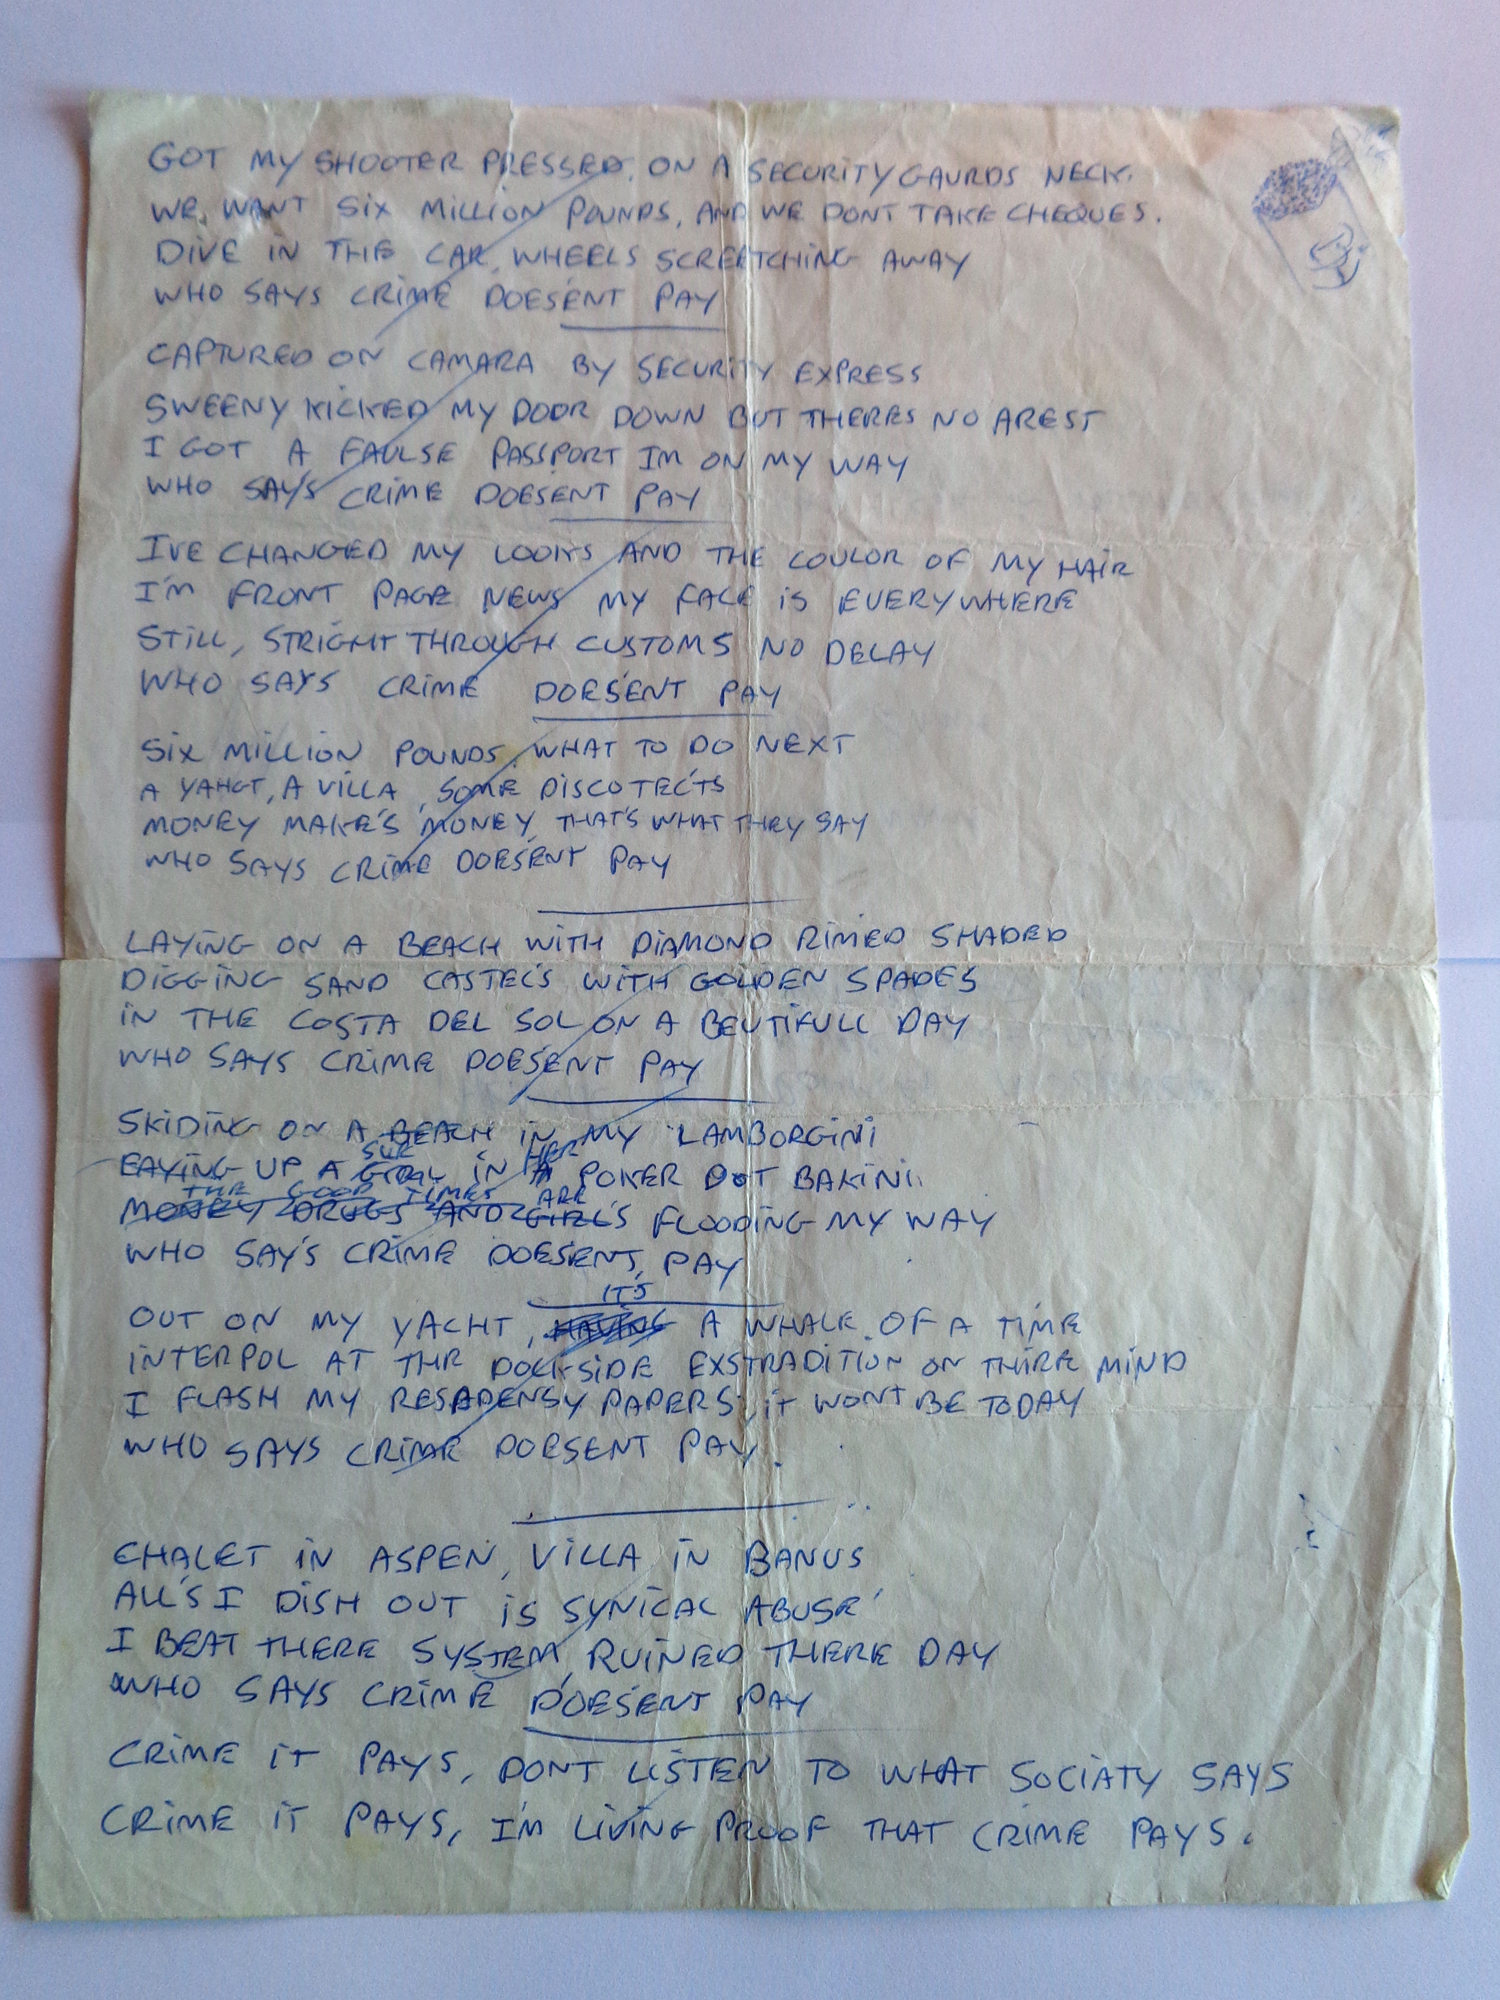 GOT MY SHOOTER PRESSED, ON A SECURITY GAURDS NECK.
WE WANT SIX MILLION POUNDS, AND WE DONT TAKE CHEQUES.
DIVE IN THE CAR, WHEELS SCREETCHING AWAY
WHO SAYS CRIME DOESENT PAY
CAPTURED ON CAMARA BY SECURITY EXPRESS
SWEENY KICKED MY DOOR DOWN BUT THERES NO AREST
I GOT A FAULSE PASSPORT IM ON MY WAY
WHO SAYS CRIME DOESENT PAY
IVE CHANGED MY LOOKS AND THE COULOR OF MY HAIR
I'M FRONT PAGE NEWS MY FACE IS EVERYWHERE
STILL, STRIGHT THROUGH CUSTOMS NO DELAY
WHO SAYS CRIME DOESENT PAY
SIX MILLION POUNDS, WHAT TO DO NEXT
A YAHCT, A VILLA, SOME DISCOTECTS
MONEY MAKE'S MONEY, THAT'S WHAT THEY SAY
WHO SAYS CRIME DOESENT PAY
LAYING ON A BEACH WITH DIAMOND RIMED SHADED
DIGGING SAND CASTEL'S WITH GOLDEN SPADES
IN THE COSTA DEL SOL ON A BEUTIFULL DAY
WHO SAYS CRIME DOESENT PAY
SKIDING ON A BEACH IN MY LAMBORGINI
EAYING UP A GIRL IN A HER POKER DOT BAKINI.
THE GOOD TIMES ARE
MONEY DRUGS AND GIRL'S FLOODING MY WAY
WHO SAY'S CRIME DOESENT, PAY
IT'S
OUT ON MY YACHT, HAVING A WHALE OF A TIME
INTERPOL AT THE DOCKSIDE EXSTRADITION ON THIRE MIND
I FLASH MY RESADENSY PAPERS, IT WONT BE TODAY
WHO SAYS CRIME DOESENT PAY.
CHALET IN ASPEN, VILLA IN BANUS
ALL'S I DISH OUT IS SYNICAL ABUSE
I BEAT THERE SYSTEM, RUINED THERE DAY
WHO SAYS CRIME DOESENT PAY
CRIME IT PAYS, DONT LISTEN TO WHAT SOCIATY SAYS
CRIME IT PAYS, I'M LIVING PROOF THAT CRIME PAYS.